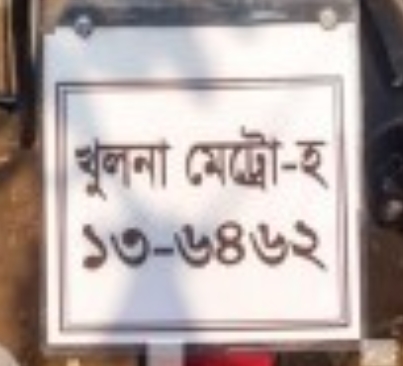 খুলনা মেট্রো-হ
১৩-৬৪৬২